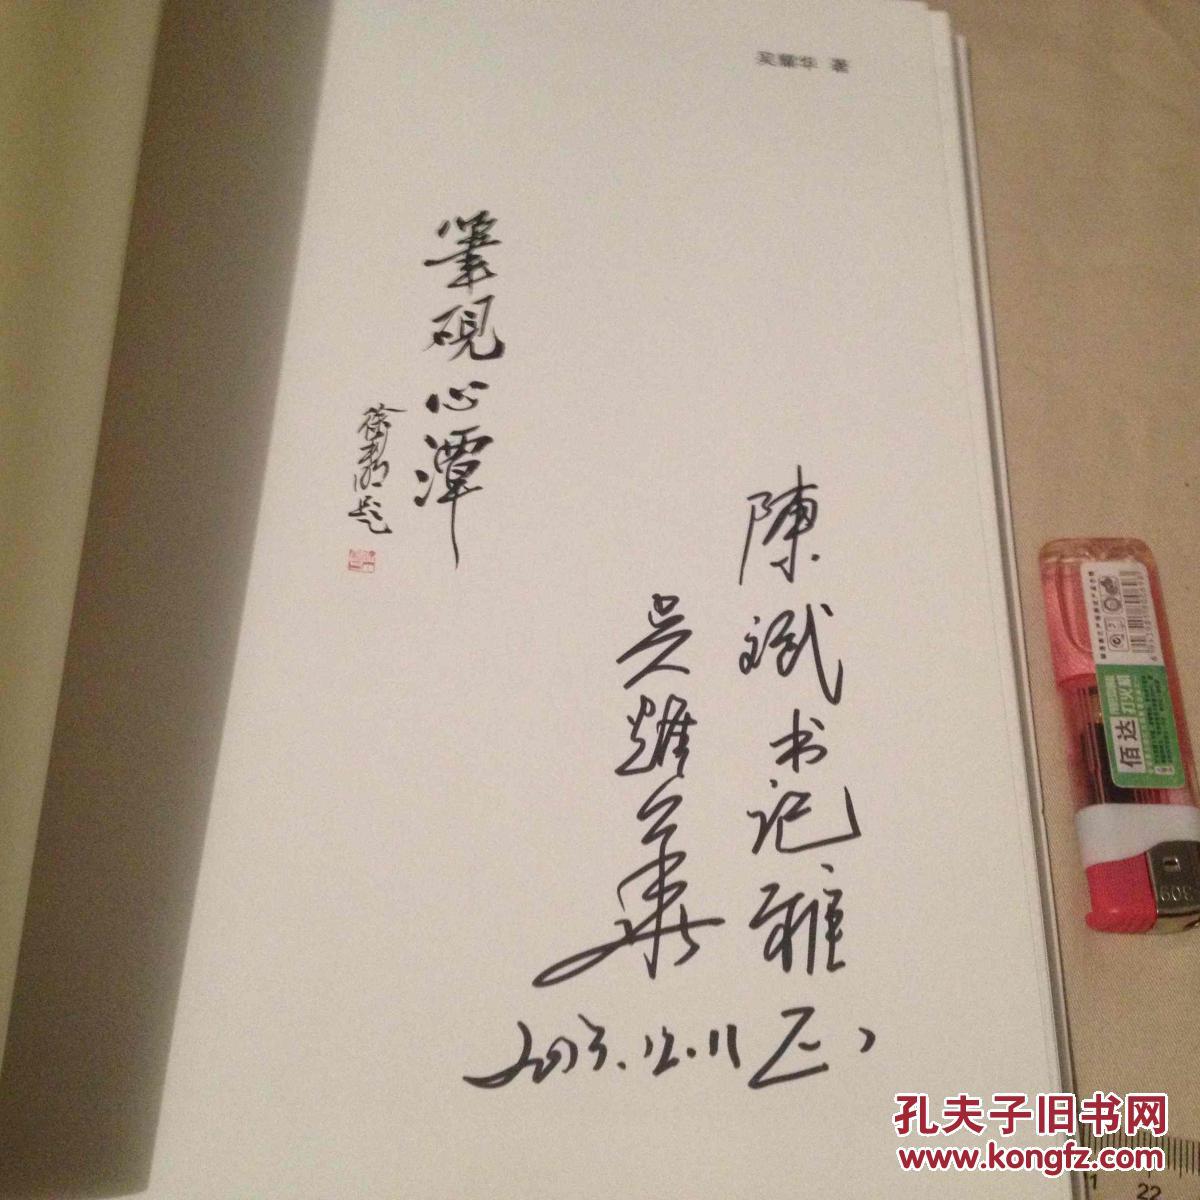 吴耀华 著
筆砚心潭
徐
题
陳斌书记雅正
吴耀华
2013.12.11
佰达
打火机
309
孔夫子旧书网
www.kongfz.com
1 22